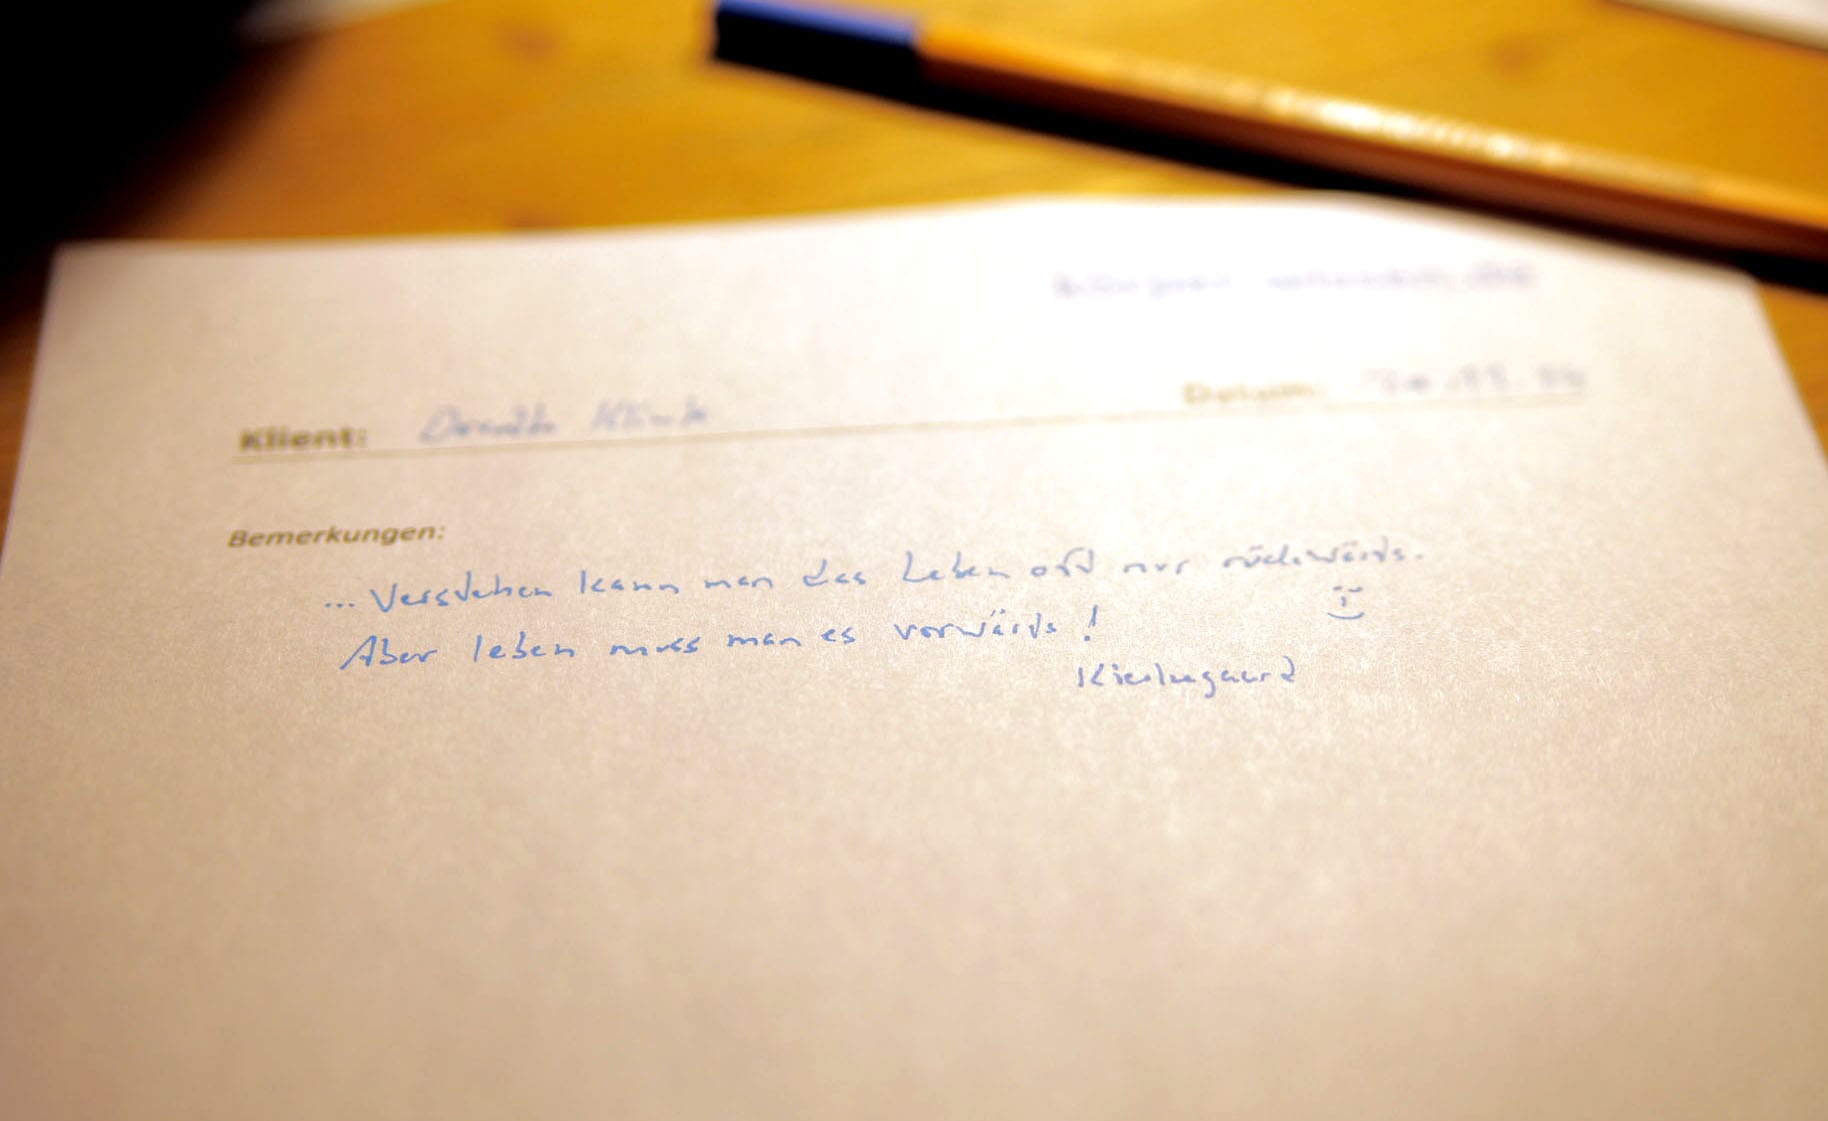 Klient:
Datum:
Bemerkungen:
... Verstehen kann man das Leben oft nur rückwärts.
Aber leben muss man es vorwärts!
Kierkegaard